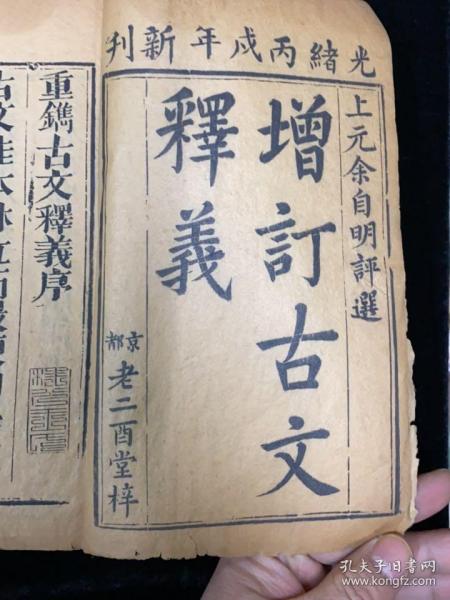 光緒丙戌年新刊
上元余自明評選
增訂古文
釋義
京都老二酉堂梓
重鐫古文釋義序
孔夫子旧书网
www.kongfz.com